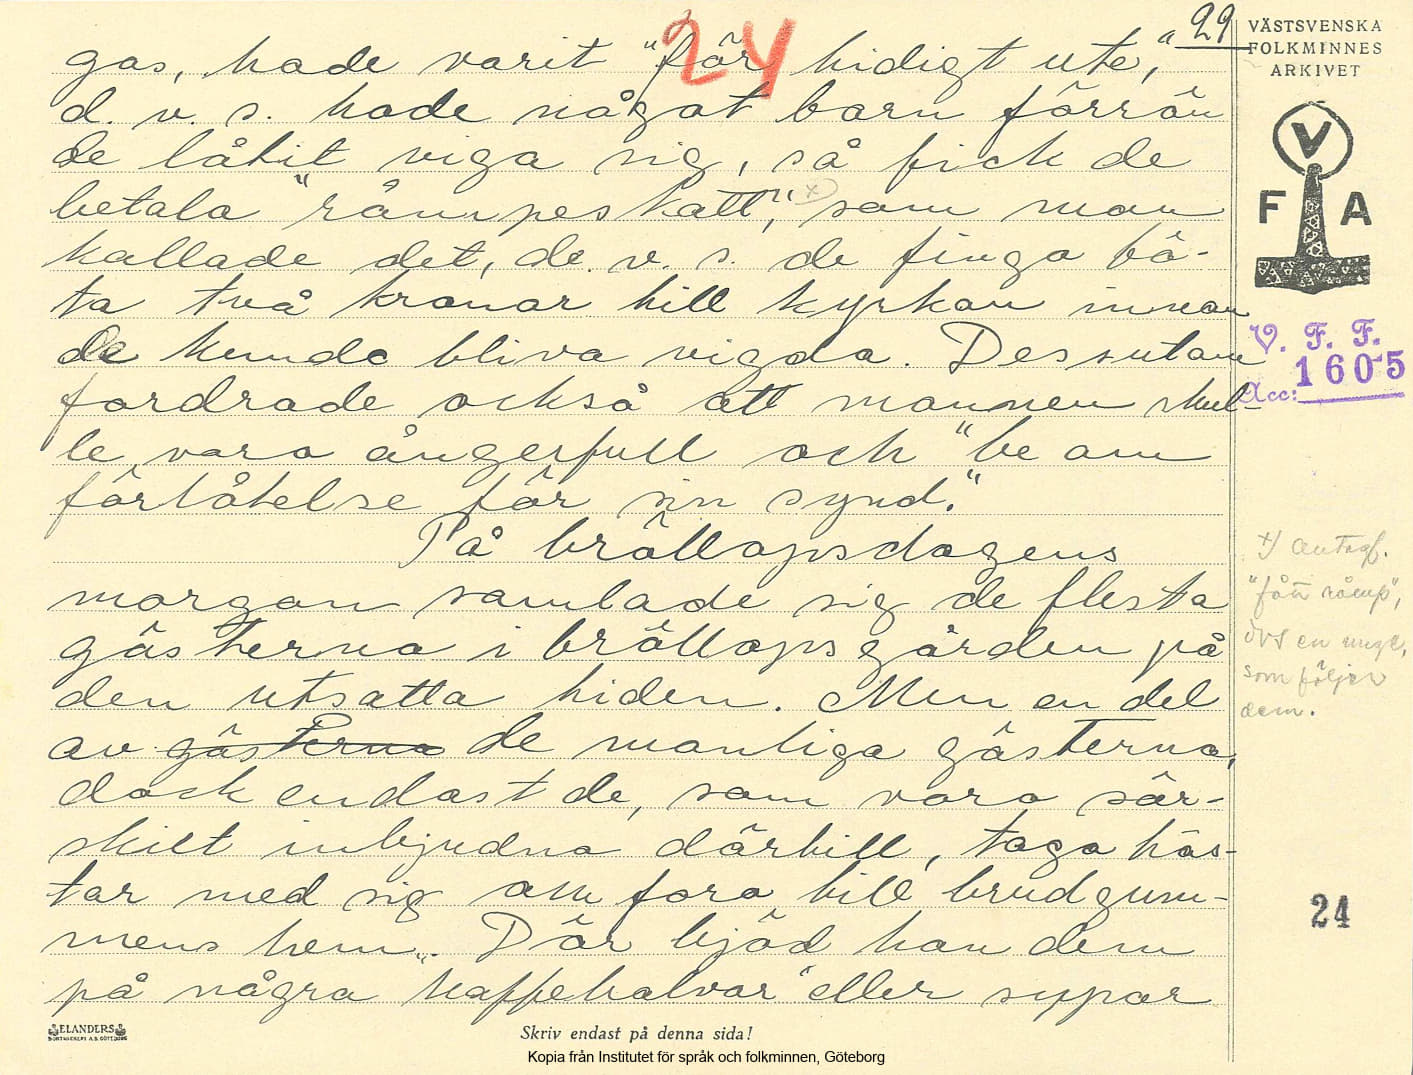 24
29
gas, hade varit "för hidigt ute,"
d. v. s. hade något barn förrän
de låtit viga sig, så fick de
betala "råmpeskatt", x) som man
kallade det, de. v. s. de finga bö-
ta två kronor till kyrkan innan
de kunde bliva vigda. Dessutom
fordrade också att mannen skul-
le vara ångerfull och "be om
förlåtelse för sin synd."
På bröllopsdagens
morgon samlade sig de flesta
gästerna i bröllopsgården på
den utsatta tiden. Men en del
av gästerna de manliga gästerna,
dock endast de, som voro sär-
skilt inbjudna därtill, togo häs-
tar med sig om foro till brudgum-
mens hem. Där bjöd han dem
på några "kaffehalvor" eller supar
VÄSTSVENSKA
FOLKMINNES
ARKIVET
V
F A
V. F. F.
Acc: 1605
x) antagl.
"fått råmp",
dvs en unge,
som följer
dem.
24
ELANDERS
Skriv endast på denna sida!
Kopia från Institutet för språk och folkminnen, Göteborg